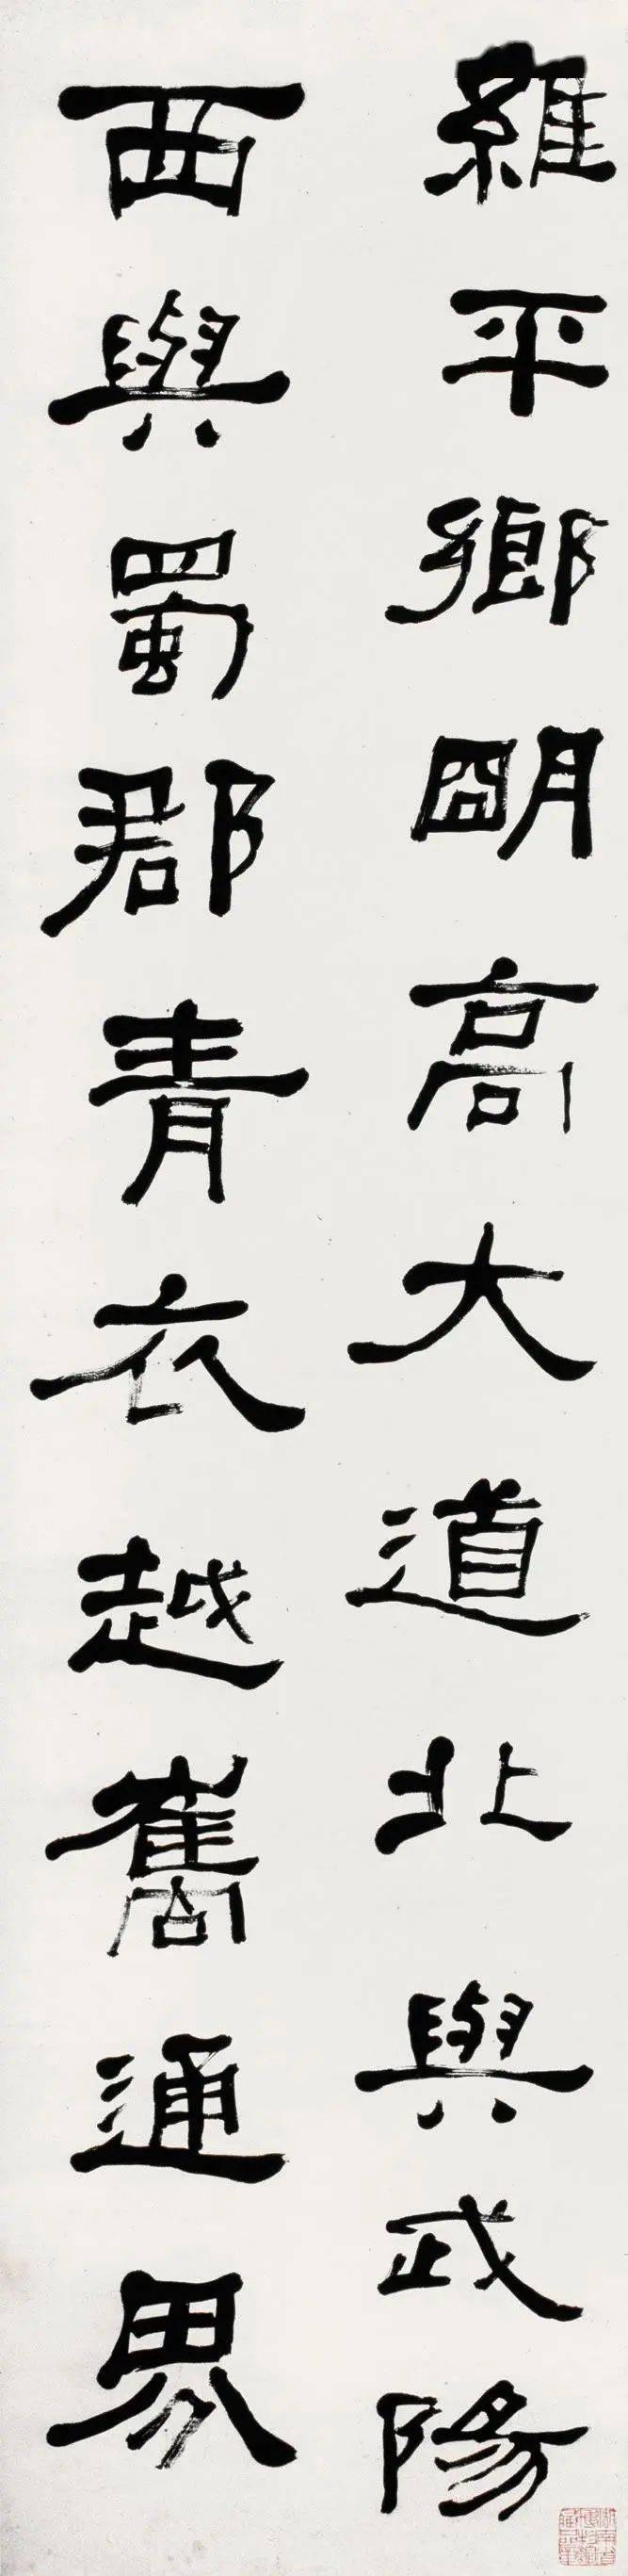 羅平鄉明高大道北與武陽
西與蜀郡青衣越巂通界